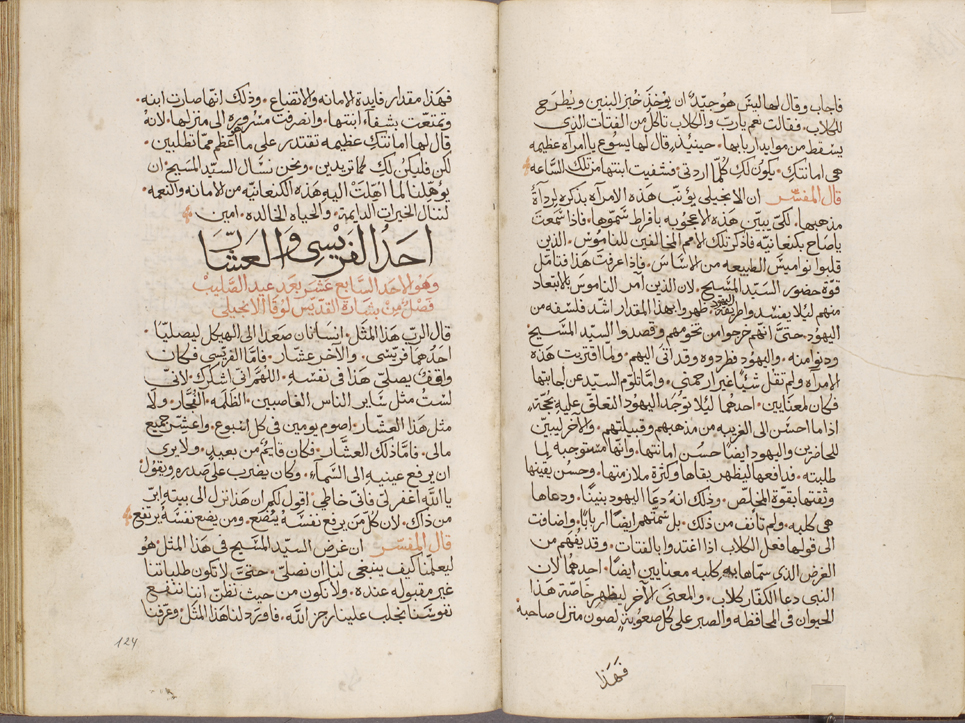 فاجاب وقال لها ليس هو جيّدًا ان يوخذ خبز البنين ويطرح
للكلاب. فقالت نعم يا ربّ والكلاب تاكل من الفتات الذى
يسقط من موايد اربابها. حينيذ قال لها يسوع يا امرآه عظيمه
هى امانتك. يكون لك كلّما اردتى. فشفيت ابنتها من تلك السّاعه
قال المفسّر ان الانجيلى يؤنّب هذه الامرآه بذكره لرداءة
مذهبها. لكى يبيّن هذه الاعجوبه بافراط سموّها. فاذا سمعت
يا صاح بكنعانيّه فاذكر تلك الامم المخالفين للناموس. الذين
قلبوا نواميس الطبيعه من الاساس. فاذا عرفت هذا فتامّل
قوّة حضور السيّد المسّيح. لان الذين آمر الناموس بالابتعاد
منهم ليلا يفسدوا طريقة اليهود. ظهروا بهذا المقدار اشدّ فلسفه من
اليهود. حتّى انّهم خرجوا من تخومهم وقصدوا السيّد المسّيح
ودنوا منه. واليهود فطردوه وقد اتى اليهم. ولما اقتربت هذه
الامراه ولم تقل شيًا غير ارحمنى. وامّا تلوّم السيّد عن اجابتها
فكان لمعنايين. احدهما ليلا توجد اليهود التعلّق عليه بحجّةٍ
اذا ما احسن الى الغريبه من مذهبهم وقبيلتهم. والاخر ليبين
للحاضرين واليهود ايضًا حسن امانتها. وانّها مستوجبة لما
طلبته. فدافعها ليظهر بقاها وكثرة ملازمتها. وحسن يقينها
وثقتها بقوّة المخلّص. وذلك انه دعا اليهود بنينًا. ودعاها
هى كلبه. ولم تانف من ذلك. بل سمّتهم ايضًا اربابًا. واضافت
الى قولها فعل الكلاب اذا اغتدوا بالفتات. وقد يفهم من
الغرض الذى سمّاها به كلبه معنايين ايضًا. احدهما لان
النبى دعا الكفار كلاب. والمعنى الآخر ليظهر خاصّة هذا
الحيوان فى المحافظه والصبر على كل صعوبةٍ لصون منزل صاحبه
فهذا
فهذا مقدار فايدة الامانه والاتضاع. وذلك انّها صارت ابنه.
وتمتّعت بشفاء ابنتها. وانصرفت مسروره الى منزلها. لانه
قال لها امانتك عظيمه تقتدر على ما هو اعظم ممّا تطلبين.
لكن فليكن لك كما تريدين. ونحن نسّال السيّد المسّيح ان
يؤهّلنا لما اهّلت اليه هذه الكنعانيّه من الامانه والنعمه.
لننال الخيرات الدايمة. والحياه الخالده. امين
احد الفرّيسى والعشّار
وهو الاحد السابع عشر بعد عيد الصّليب
فصل من بشارة القدّيس لوقا الانجيلى
قال الربّ هذا المثل. انسانان صعدا الى الهيكل ليصلّيا.
احدهما فرّيسى. والاخر عشّار. فامّا الفرّيسى فكان
واقفًا يصلّى هذا فى نفسه. اللهمّ انى اشكرك. لانّى
لست مثل ساير الناس الغاصبين. الظلمه. الفجّار. ولا
مثل هذا العشّار. اصوم يومين فى كل اسبوع. واعشّر جميع
مالى. فامّا ذلك العشّار. فكان قايمٌ من بعيد. ولا يرى
ان يرفع عينيه الى السّماءِ. وكان يضرب على صدره ويقول
يا اللّه اغفر لى فانى خاطى. اقول لكم ان هذا نزل الى بيته ابرّ
من ذاك. لان كلّ من يرفع نفسه يتّضع. ومن يضع نفسه يرتفع
قال المفسّر ان غرض السيّد المسّيح فى هذا المثل هو
ليعلّمنا كيف ينبغى لنا ان نصلّى. حتىّ لا تكون طلباتنا
غير مقبوله عنده. ولا نكون من حيث نظنّ اننا ننتفع
نفوسنا نجلب علينا رجز اللّه. فافرد لنا هذا المثل. وعرّفنا
124